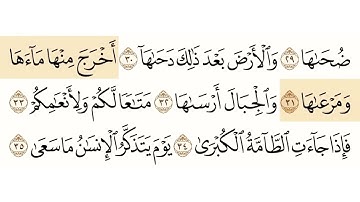 ضُحَىٰهَا ٢٩ وَٱلۡأَرۡضَ بَعۡدَ ذَٰلِكَ دَحَىٰهَآ ٣٠ أَخۡرَجَ مِنۡهَا مَآءَهَا
وَمَرۡعَىٰهَا ٣١ وَٱلۡجِبَالَ أَرۡسَىٰهَا ٣٢ مَتَٰعٗا لَّكُمۡ وَلِأَنۡعَٰمِكُمۡ ٣٣
فَإِذَا جَآءَتِ ٱلطَّآمَّةُ ٱلۡكُبۡرَىٰ ٣٤ يَوۡمَ يَتَذَكَّرُ ٱلۡإِنسَٰنُ مَا سَعَىٰ ٣٥